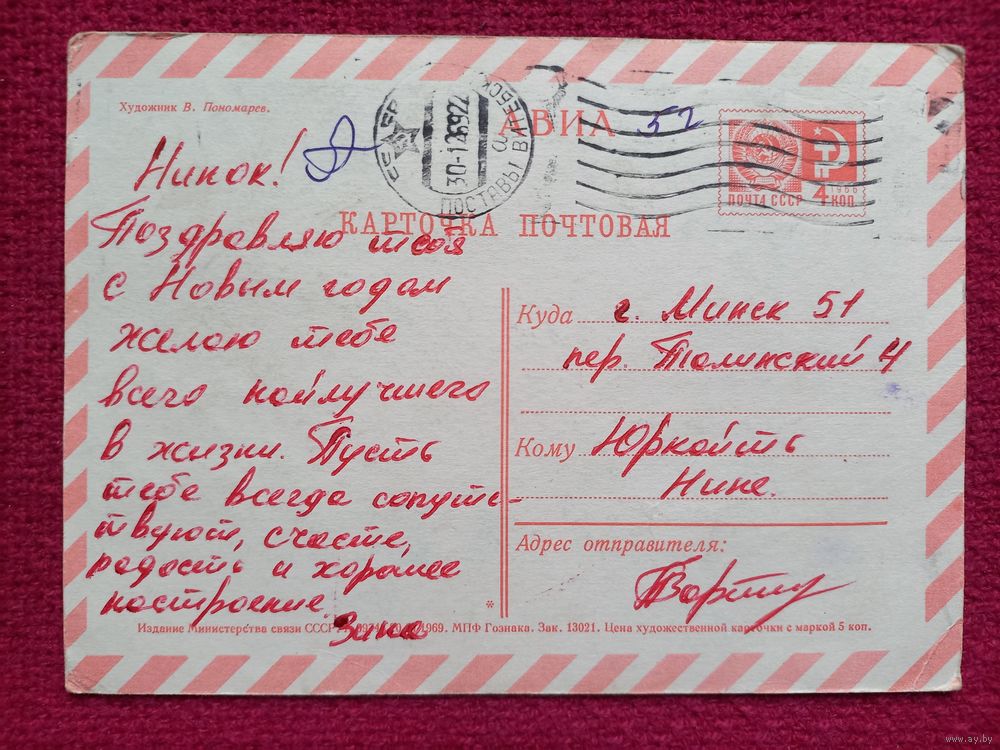 Художник В. Пономарев.
АВИА 52
ПОСТАВЫ ВИТЕБСК
30-1269 22
ПОЧТА СССР 4 КОП.
1966
КАРТОЧКА ПОЧТОВАЯ
Нинок!
Поздравляю тебя
с Новым годом
желаю тебе
всего найлучшего
в жизни. Пусть
тебе всегда сопутс-
твуют, счастье,
радость и хорошее
настроение.
Зина
Куда г. Минск 51
пер. Талинский 4
Кому Юркойть
Нине.
Адрес отправителя:
*
Издание Министерства связи СССР 1969. МПФ Гознака. Зак. 13021. Цена художественной карточки с маркой 5 коп.
www.ay.by